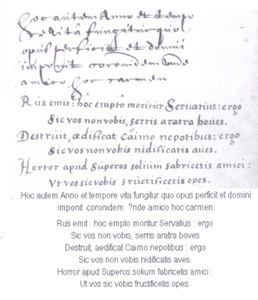 hoc autem Anno et tempo
re vita fungitur quo
opus perficit et domini
imponit coronidem
amico hoc carmen
Rus emit: hoc empto moritur Servatius: ergo
Sic vos non vobis, serris aratra boves.
Destruit, ædificat Caimo nepotibus: ergo
Sic vos non vobis nidificatis aves.
Horror apud Superos solium fabricetis amici:
Ut vos sic vobis fructificetis opes.
Hoc autem Anno et tempore vita fungitur quo opus perficit et domini
imponit coronidem ?nde amico hoc carmen.
Rus emit: hoc empto moritur Servatius : ergo
Sic vos non vobis, serris aratra boves
Destruit, aedificat Caimo nepotibus : ergo
Sic vos non vobis nidificatis aves.
Horror apud Superos solium fabricetis amici :
Ut vos sic vobis fructificetis opes